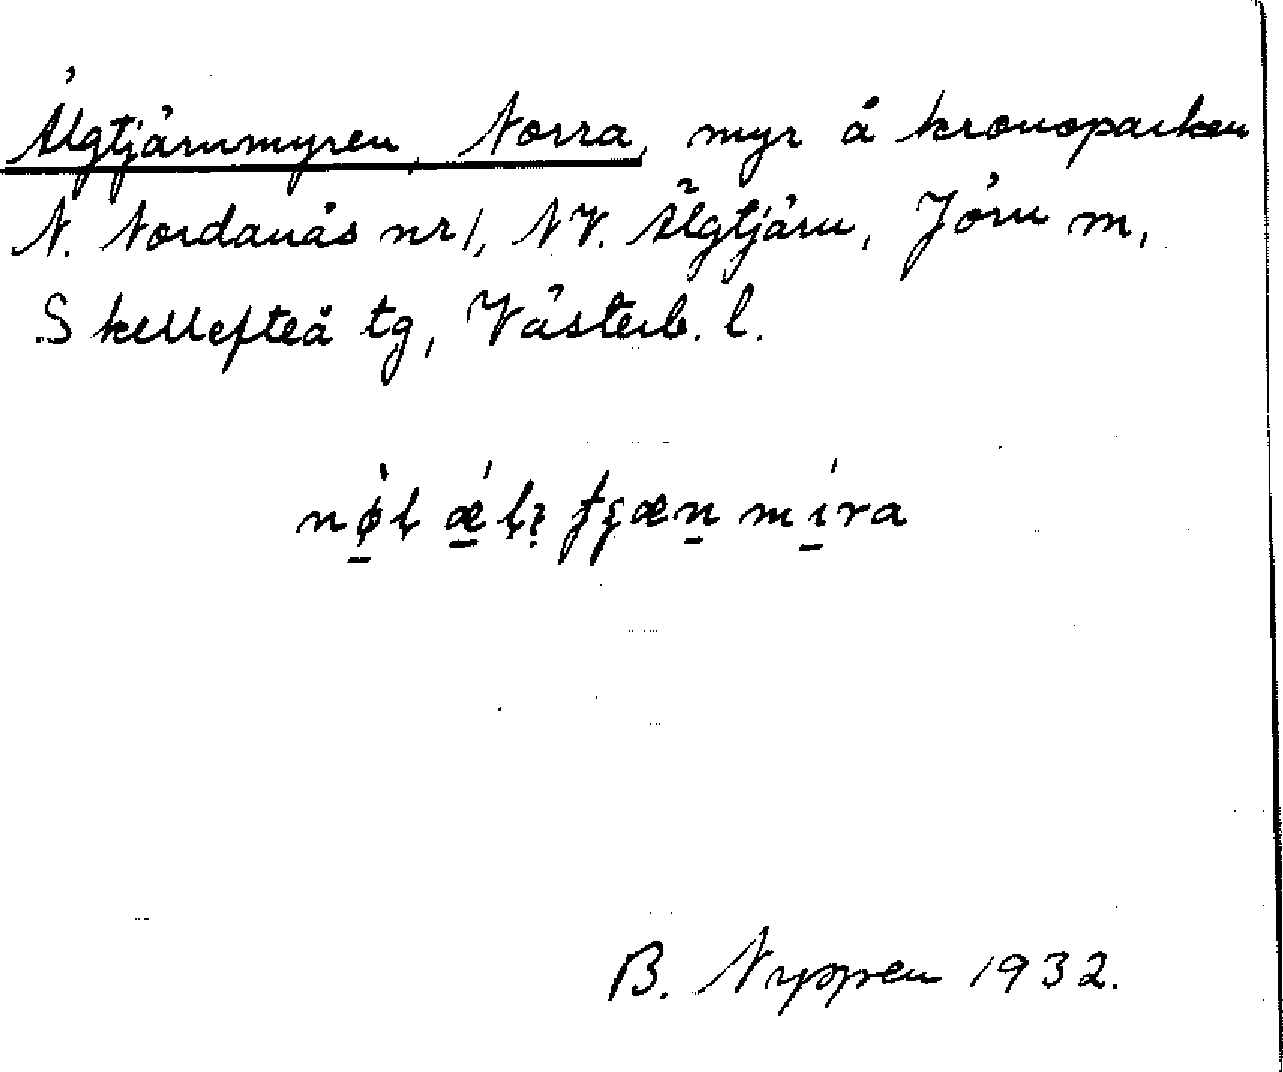 Älgtjärnmyren, Norra, myr å kronoparken
N. Nordanås nr 1, NV. Älgtjärn, Jörn m,
Skellefteå tg, Västerb. l.
B. Nyppen 1932.